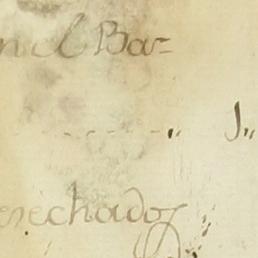 n el Bar=
J,,
erechadoz